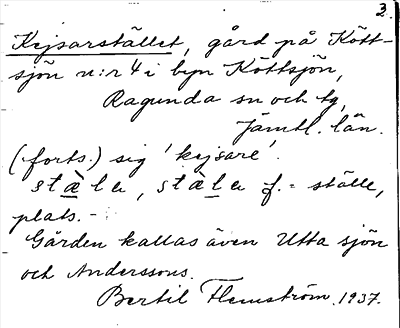 3.
Kejsarstället, gård på Kött-
sjön n:r 4 i byn Köttsjön,
Ragunda sn och tg,
Jämtl. län.
(forts.) sig 'kejsare'.
stæ̀lɐ, stæ̀lɐ f. = ställe,
plats. -
Gården kallas även Utta sjön
och Anderssons.
Bertil Flemström. 1937.